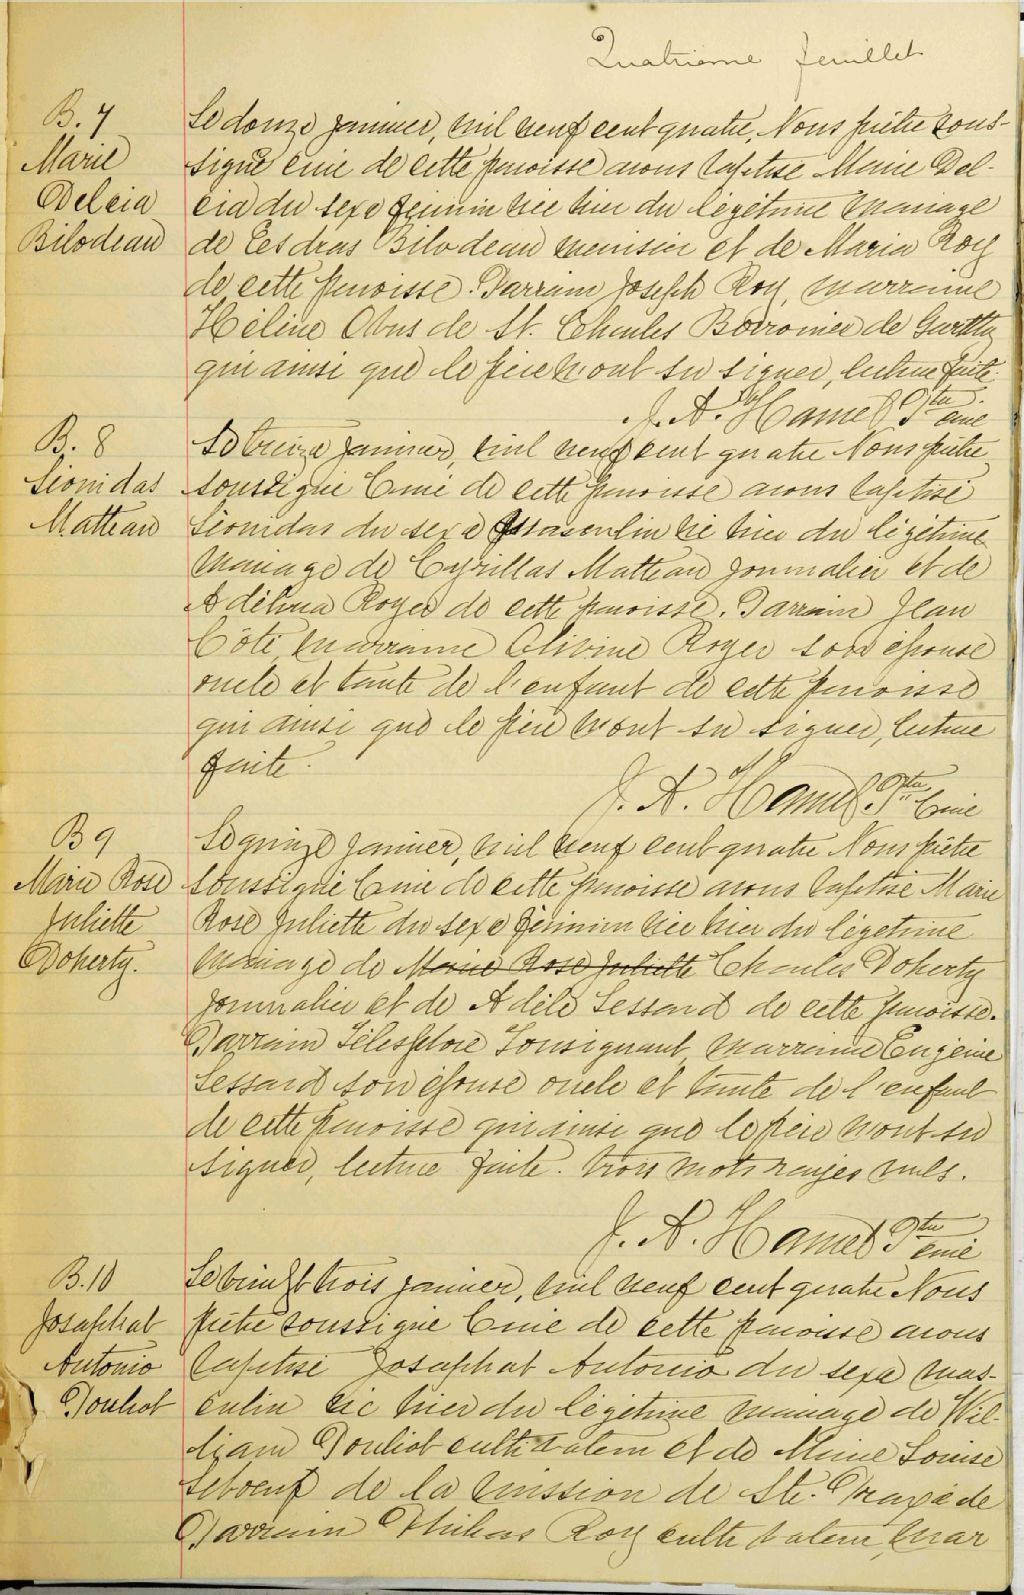 Quatrième feuillet
B. 7
Marie
Delcia
Bilodeau
Le douze janvier, mil neuf cent quatre, Nous prêtre sous-
signé curé de cette paroisse avons baptisé Marie Del-
cia du sexe féminin née hier du légitime mariage
de Esdras Bilodeau menuisier et de Maria Roy
de cette paroisse. Parrain Joseph Roy, marraine
Hélène Obus de St. Charles Borromée de Garthby
qui ainsi que le père n'ont su signer, lecture faite.
J. A. Hamel Ptre
curé
B. 8
Léonidas
Matteau
Le treize janvier, mil neuf cent quatre Nous prêtre
soussigné Curé de cette paroisse avons baptisé
Léonidas du sexe masculin né hier du légitime
mariage de Cyrillas Matteau journalier et de
Adélina Roger de cette paroisse. Parrain Jean
Côté, marraine Olivine Roger son épouse
oncle et tante de l'enfant de cette paroisse
qui ainsi que le père n'ont su signer, lecture
faite.
J. A. Hamel Ptre Curé
B 9
Marie Rose
Juliette
Doherty.
Le quinze janvier, mil neuf cent quatre Nous prêtre
soussigné Curé de cette paroisse avons baptisé Marie
Rose Juliette du sexe féminin née hier du légitime
mariage de Marie Rose Juliette Charles Doherty
journalier et de Adèle Lessard de cette paroisse.
Parrain Télesphore Tousignant, marraine Eugénie
Lessard son épouse oncle et tante de l'enfant
de cette paroisse qui ainsi que le père n'ont su
signer, lecture faite. trois mots rayés nuls.
J. A. Hamel Ptre
curé
B. 10
Josaphat
Antonio
Pouliot
Le vingt trois janvier, mil neuf cent quatre Nous
prêtre soussigné Curé de cette paroisse avons
baptisé Josaphat Antonio du sexe mas-
culin né hier du légitime mariage de Wil-
liam Pouliot cultivateur et de Marie Louise
Leboeuf de la mission de Ste. Praxède
Parrain Philias Roy cultivateur, mar